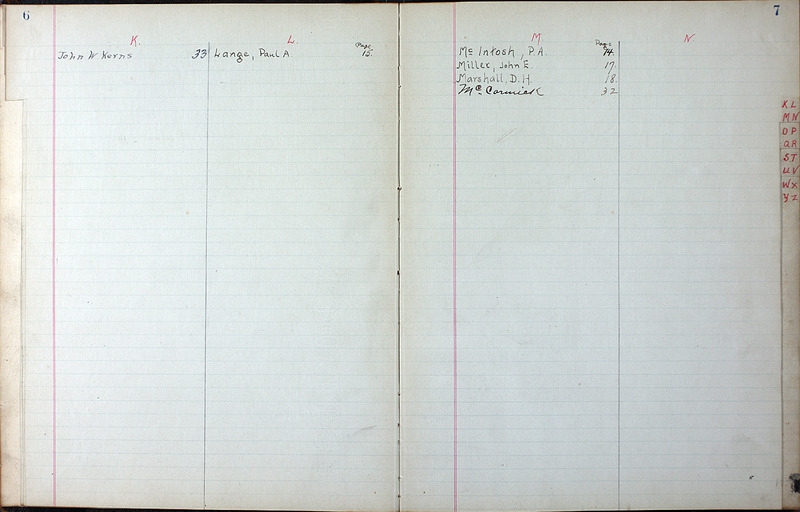 6
K.
John W Kerns 33
L.
Page
Lange, Paul A. 15.
7
M.
Page
Mc Intosh, P.A. 14.
Miller, John E. 17.
Marshall, D.H. 18.
Mc. Cormick 32
N.
K L
M N
O P
Q R
S T
U V
W X
Y Z